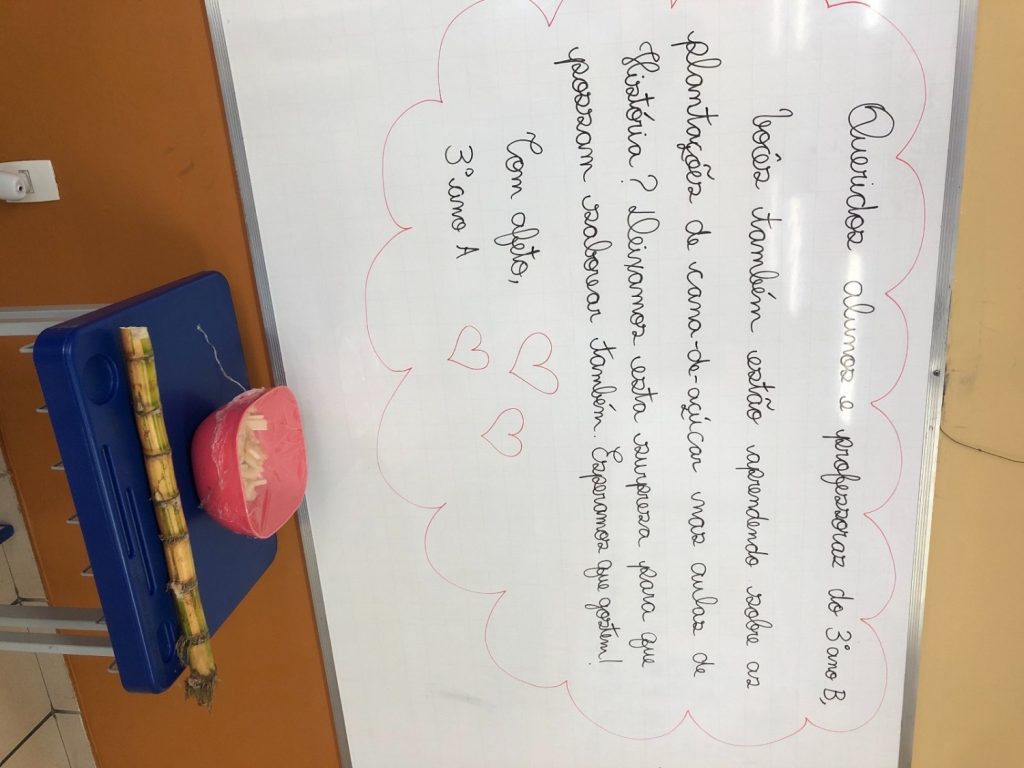 Queridos alunos e professoras do 3º ano B,
Vocês também estão aprendendo sobre as
plantações de cana-de-açúcar nas aulas de
História? Deixamos esta surpresa para que
possam saborear também. Esperamos que gostem!
Com afeto,
3º ano A